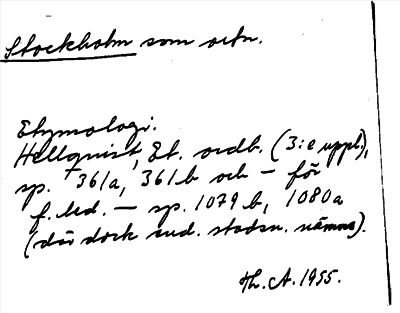 Stockholm som ortn.
Etymologi.
Hellquist, Et. ordb. (3:e uppl.),
sp. 361a, 361b och – för
f. led. – sp. 1079b, 1080a
(där dock end. stadsn. nämns).
Th. A. 1955.